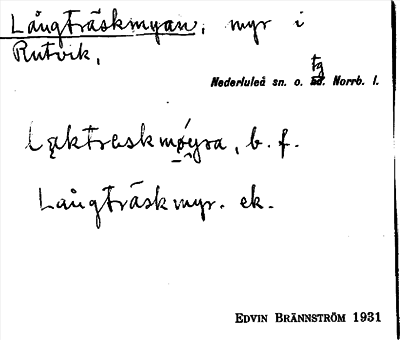 Långträskmyan, myr i
Rutvik,
tg
Nederluleå sn. o. sd. Norrb. l.
Laktraskmøyra, b. f.
Långträskmyr. ek.
EDVIN BRÄNNSTRÖM 1931